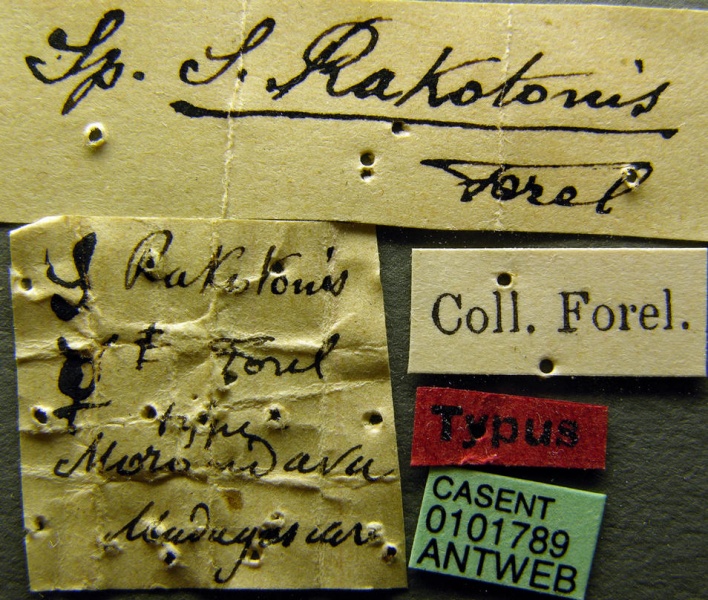 Sp. S. Rakotonis
Forel
S Rakotonis
Forel
typi
Morondava
Madagascar
Coll. Forel.
Typus
CASENT
0101789
ANTWEB